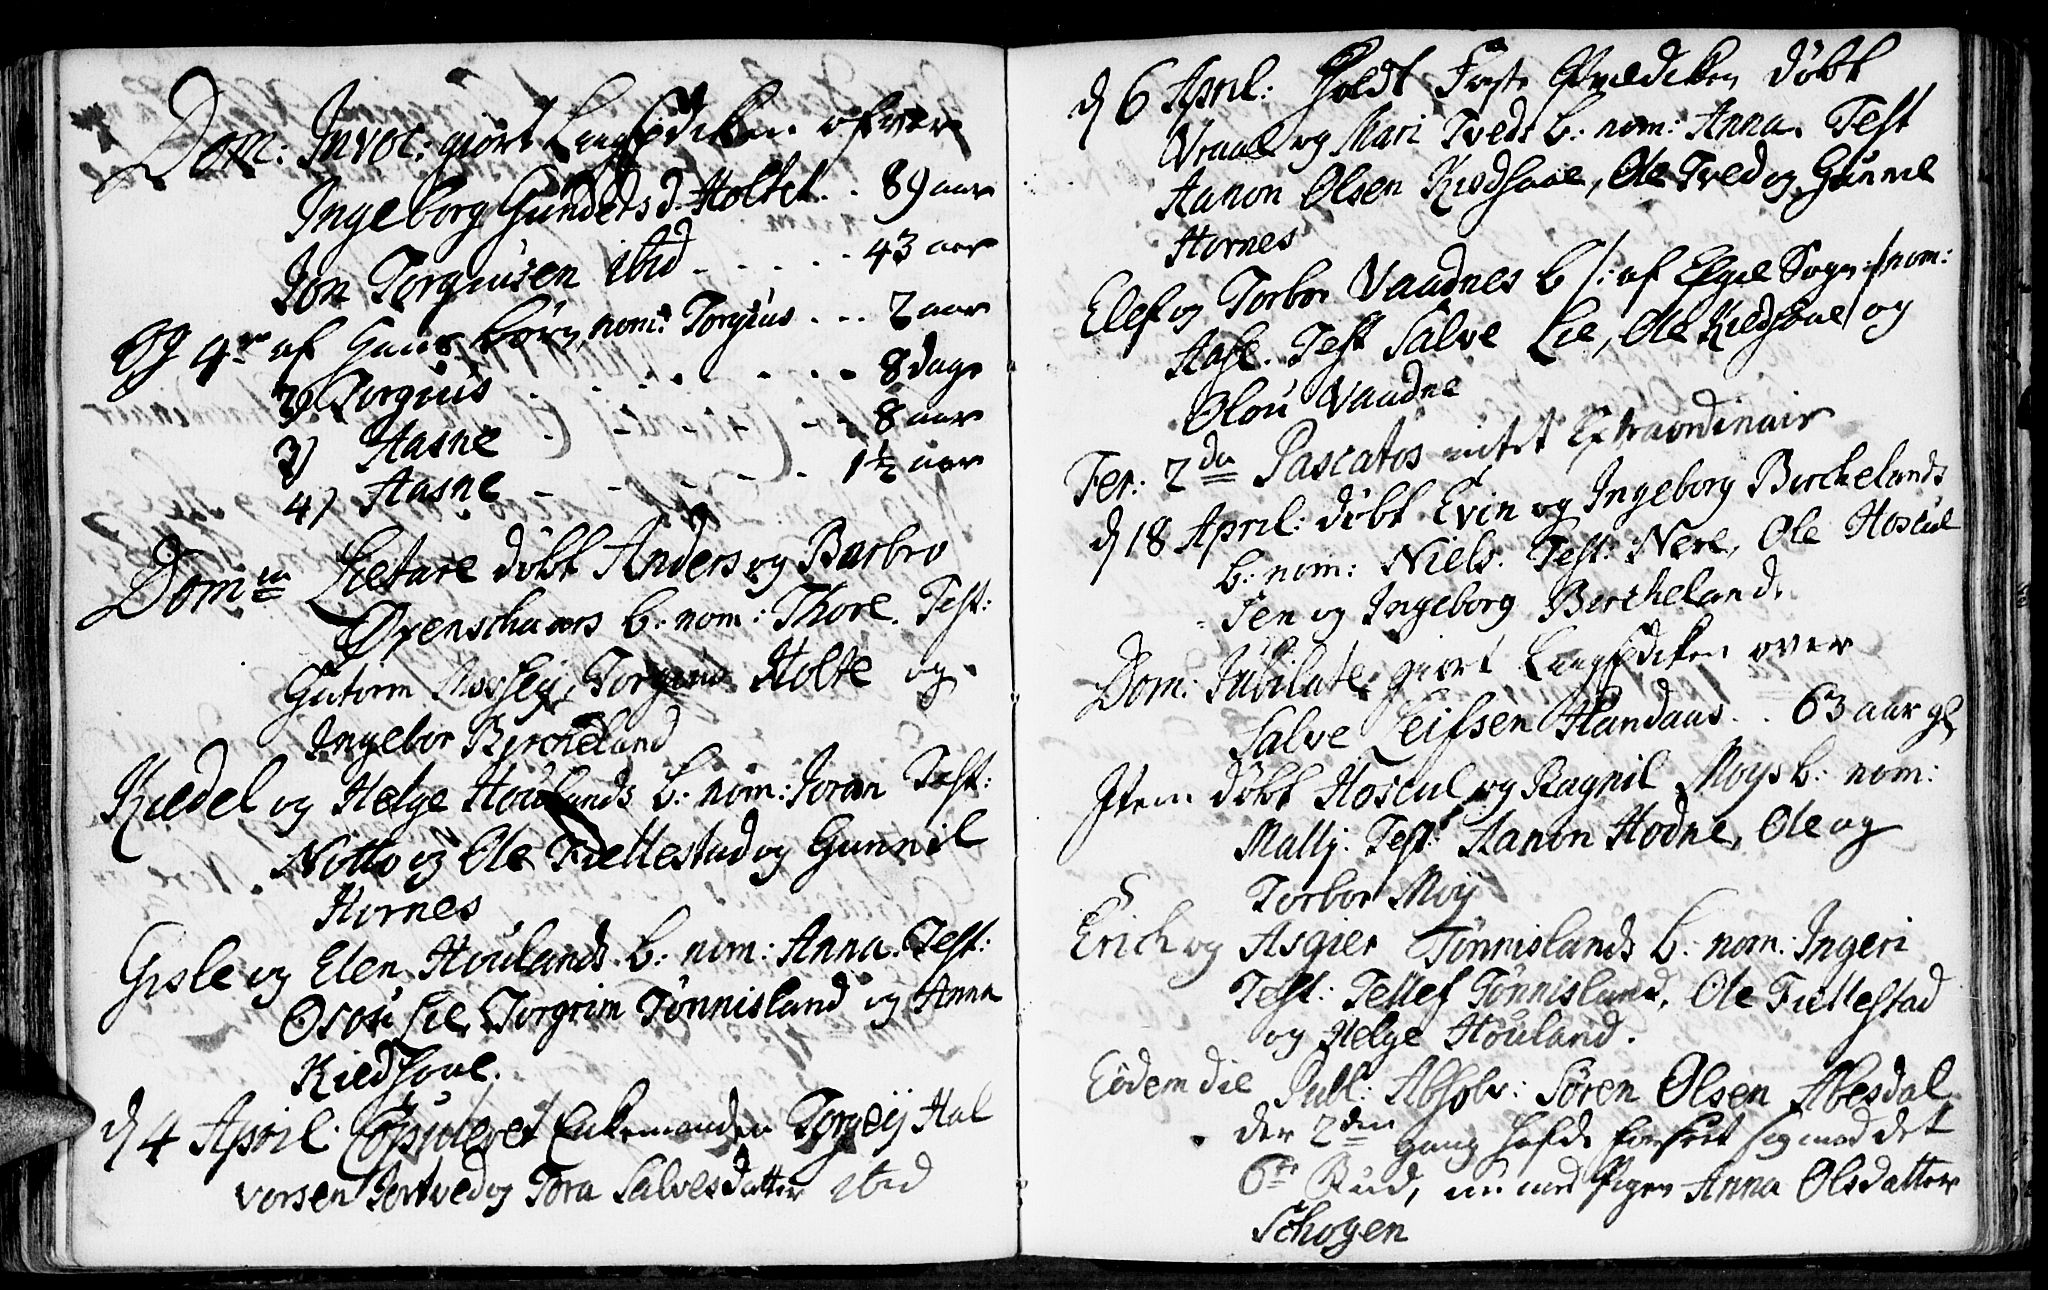 Dom: Invoc: giort Liigprediken ofver
Ingeborg Gunders d. Holtet. . 89 aar
Jon Torgiusen ibid . . . . . 43 aar
Og 4re af hans börn, nom: Torgius . . . 2 aar
2) Torgius . . . . . . . 8 dage
3) Aasne . - - - - 8 aar
4) Aasne - - - - - . 1½ aar
Domin Lætare döbt Anders og Barbro
Øxenschaars b: nom: Thore. Test:
Gutorm Torgius Holte og
Ingebor Bircheland
Kiedel og Helge Houlands b: nom: Joran Test:
Notto og Ole Fiellestad og Gunnil
Hornes
Gisle og Elen Houlands b: nom: Anna. Test:
Osou Lie, Torgrim Tönnisland og Anna
Kiedsoue.
d 4 April. Copuleret Enkemanden Torgeij Hal
vorsen Tortved og Tora Salvesdatter ibid
d 6 April: holdt Faste Prædiken döbt
Vraal og Mari Tveds b: nom: Anna. Test
Aanon Olsen Kiedsoue, Ole Tved og Gunnil
Hornes
Elef og Torbor Vaadnes b /: af Sogn :/ nom:
Aase. Test Salve Lie, Ole Kiedsoue og
Olou Vaadne
Fer: 2da Pascatos intet Extraordinair
d 18 April: döbt Evin og Ingeborg Birchelands
b: nom: Niels. Test: Nere, Ole Hoscul
Sen og Ingeborg Bircheland.
Dom: Jubilate giort Liigprediken over
Salve Leifsen Handaas . . 63 aar gl
Item döbt Hoscul og Ragnil Moys b: nom:
Mallj. Test: Aanon Hodne, Ole og
Torbor Moij
Erich og Asgier Tönnislands b. nom: Ingeri
Test: Tellef Tönnisland, Ole Fiellestad
og Helge Houland.
Eodem die Publ: Absolv: Sören Olsen Abesdal
der 2den gang hafde forseet sig mod det
6te Bud, nu med Pigen Anna Olsdatter
Schogen